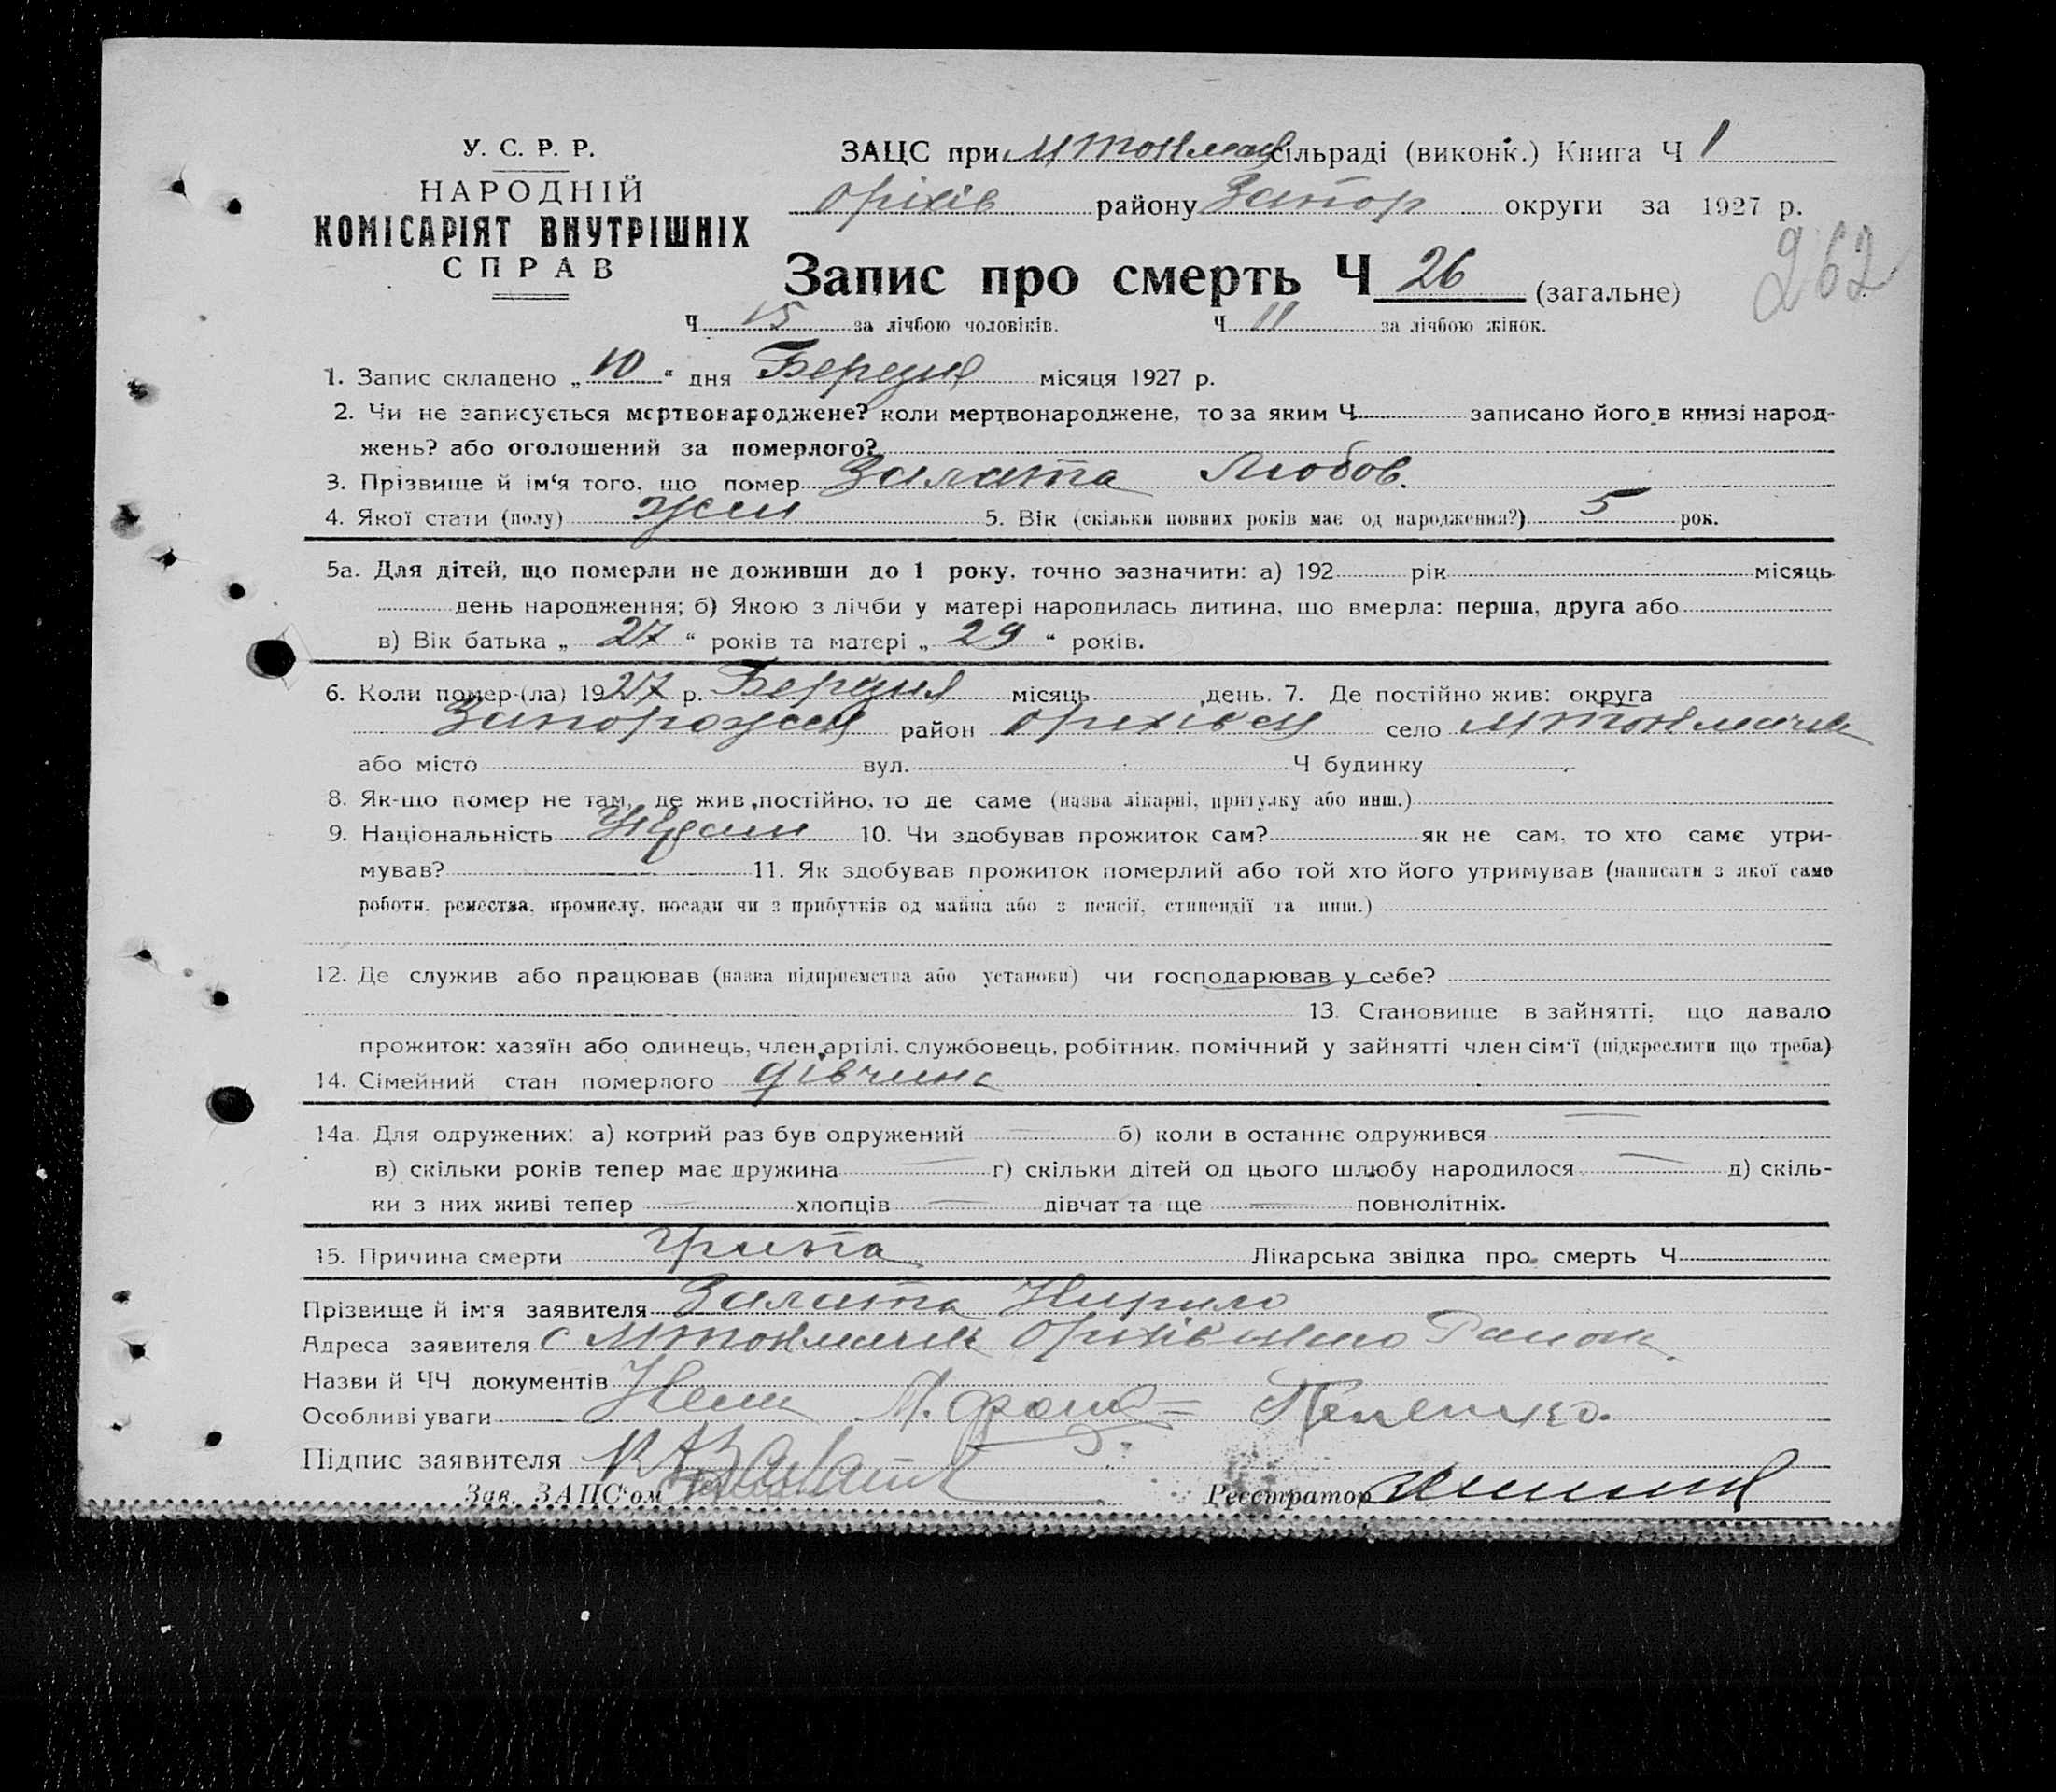 У. С. Р. Р.
НАРОДНІЙ
КОМІСАРІЯТ ВНУТРІШНІХ
СПРАВ
ЗАЦС при М Токмач сільраді (виконк.) Книга Ч 1
Оріхів району Запор округи за 1927 р.
262
Запис про смерть Ч 26 (загальне)
Ч 15 за лічбою чоловіків. Ч 11 за лічбою жінок.
1. Запис складено „ 10 “ дня Березня місяця 1927 р.
2. Чи не записується мертвонароджене? коли мертвонароджене, то за яким Ч записано його в книзі народ-
жень? або оголошений за померлого?
3. Прізвище й ім‘я того, що помер Залата Любов.
4. Якої стати (полу) Жен 5. Вік (скільки повних років має од народження?) 5 рок.
5а. Для дітей, що померли не доживши до 1 року, точно зазначити: а) 192 рік місяць
день народження; б) Якою з лічби у матері народилась дитина, що вмерла: перша, друга або
в) Вік батька „ 27 “ років та матері „ 29 “ років.
6. Коли помер-(ла) 1927 р. Березня місяць день. 7. Де постійно жив: округа
Запорожся район Оріхівсй село М Токмачка
або місто вул. Ч будинку
8. Як-що помер не там, де жив постійно, то де саме (назва лікарні, притулку або инш.)
9. Національність 10. Чи здобував прожиток сам? як не сам, то хто саме утри-
мував? 11. Як здобував прожиток померлий або той хто його утримував (написати з якої само
роботи, ремества, промислу, посади чи з прибутків од майна або з пенсії, стипендії та инш.)
12. Де служив або працював (назва підприємства або установи) чи господарював у себе?
13. Становище в зайнятті, що давало
прожиток: хазяїн або одинець, член артілі, службовець, робітник, помічний у зайнятті член сім‘ї (підкреслити що треба)
14. Сімейний стан померлого дівчина
14а. Для одружених: а) котрий раз був одружений — б) коли в останнє одружився —
в) скільки років тепер має дружина — г) скільки дітей од цього шлюбу народилося — д) скіль-
ки з них живі тепер — хлопців — дівчат та ще — повнолітніх.
15. Причина смерти Грипа Лікарська звідка про смерть Ч
Прізвище й ім‘я заявителя Залата Кирило
Адреса заявителя с М Токмачка Оріхівського Району
Назви й ЧЧ документів
Особливі уваги
Підпис заявителя К Залата
Зав. ЗАЦС‘ом Реєстратор